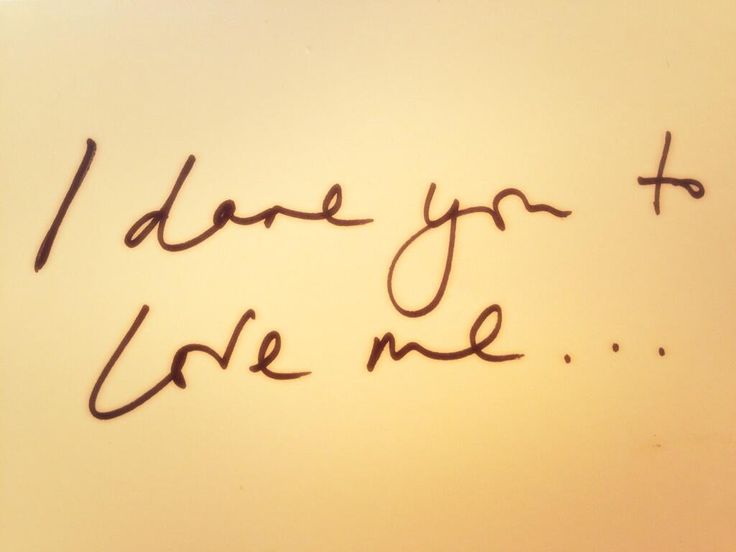 I dare you to
love me...